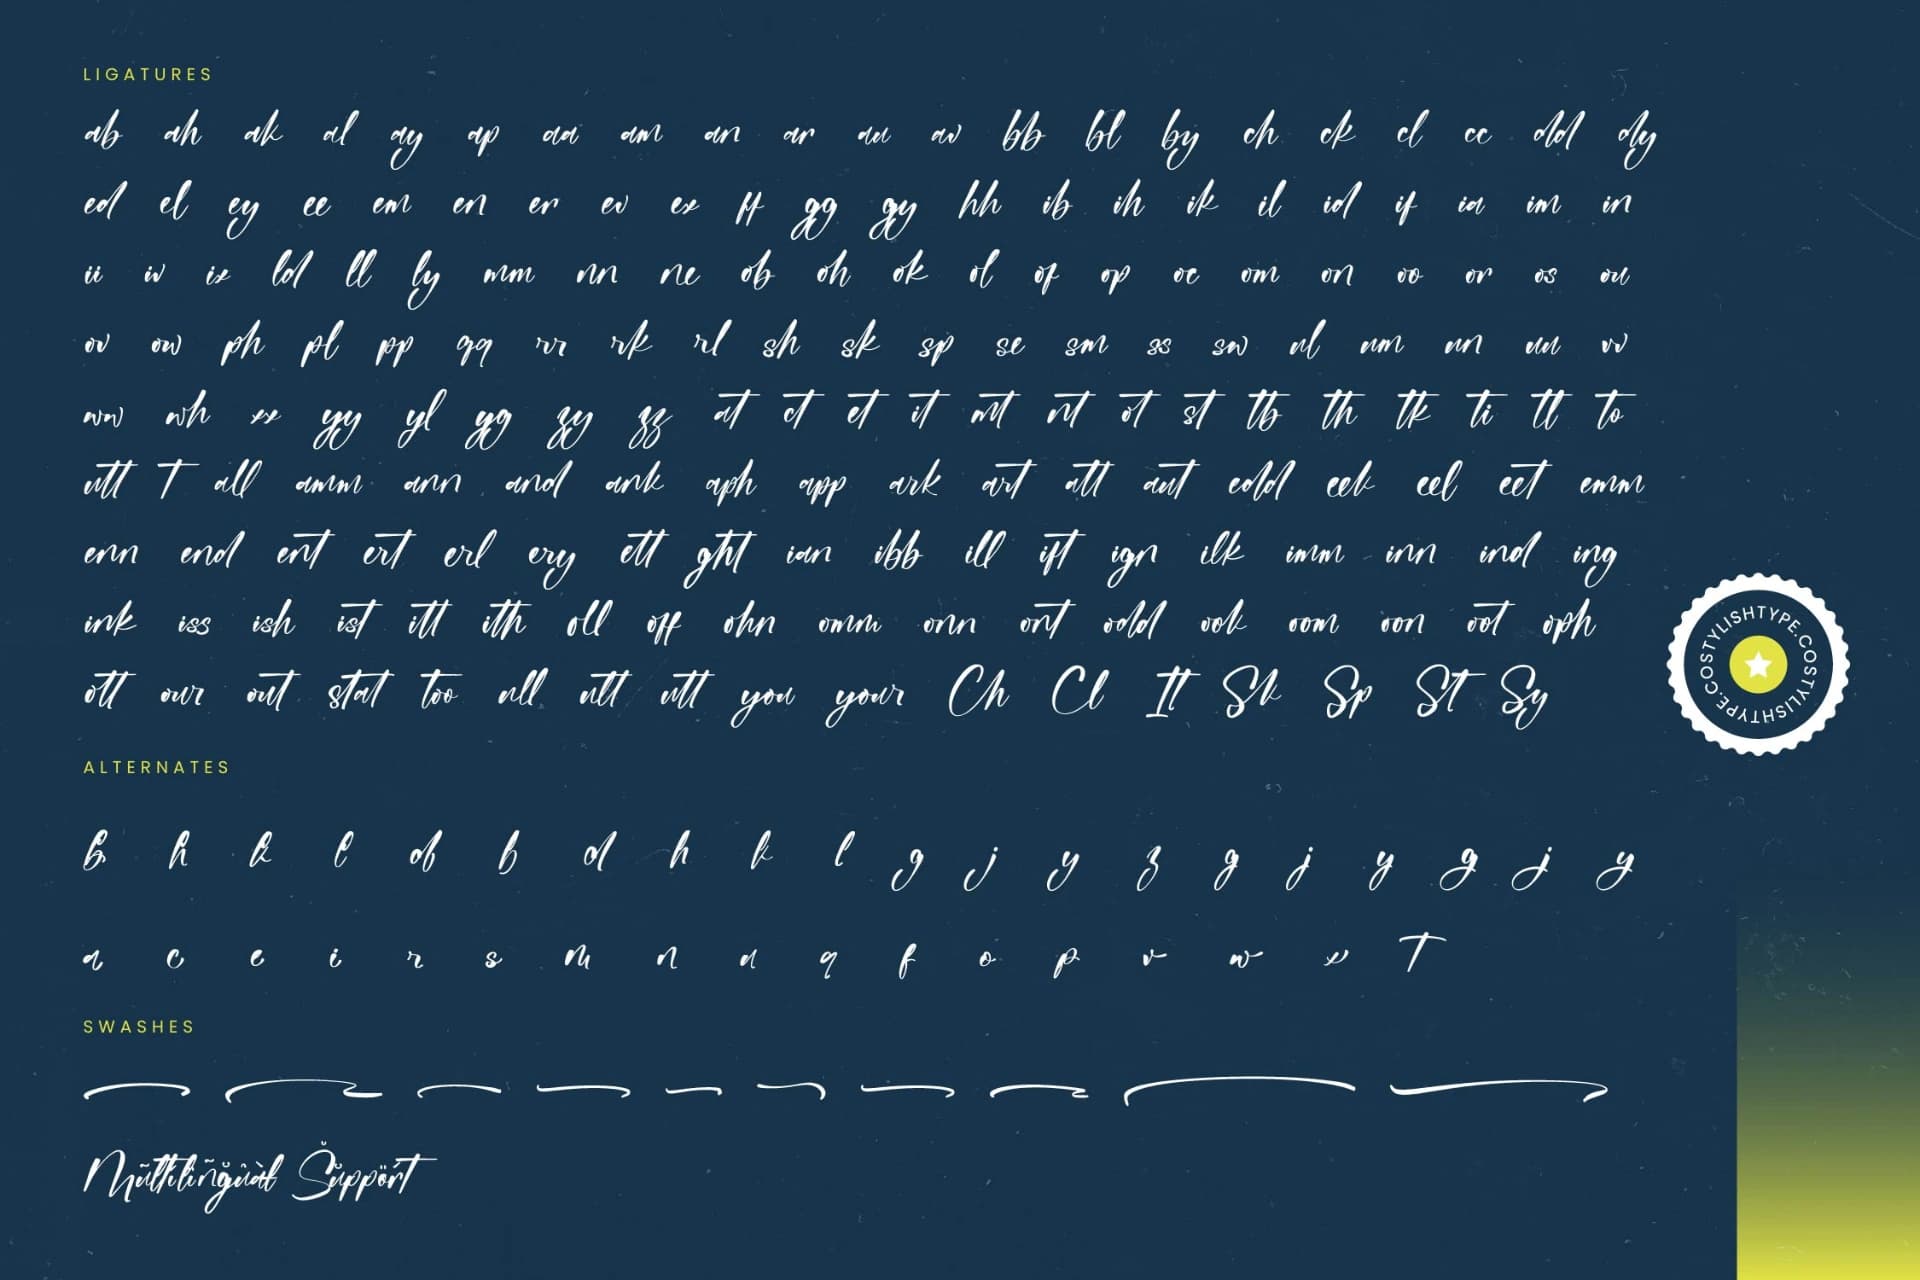 LIGATURES
ab ah ak al ay ap aa am an ar au av bb bl by ch ck cl cc dd dy
ed el ey ee em en er ev ex ff gg gy hh ib ih ik il id if ia im in
ii iv ix ld ll ly mm nn ne ob oh ok ol of op oe om on oo or os ou
ov ow ph pl pp qq rr rk rl sh sk sp se sm ss sw ul um un uu vv
ww wh xx yy yl yg zy zz at ct et it mt nt ot st tb th tk ti tt to
utt T all amm ann and ank aph app ark art att aut edd eek eel eet emm
enn end ent ert erl ery ett ght ian ibb ill ift ign ilk imm inn ind ing
ink iss ish ist itt ith oll off ohn omm onn ont odd ook oom oon oot oph
ott our out stat too ull utt utt you your Ch Cl It Sk Sp St Sy
COSTYLISHTYPE.COSTYLISHTYPE.
ALTERNATES
b h k l d b d h k l g j y z g j y g j y
a c e i r s m n u q f o p v w x T
SWASHES
Mũltĩlĩñg̃ûàl Šŭppört